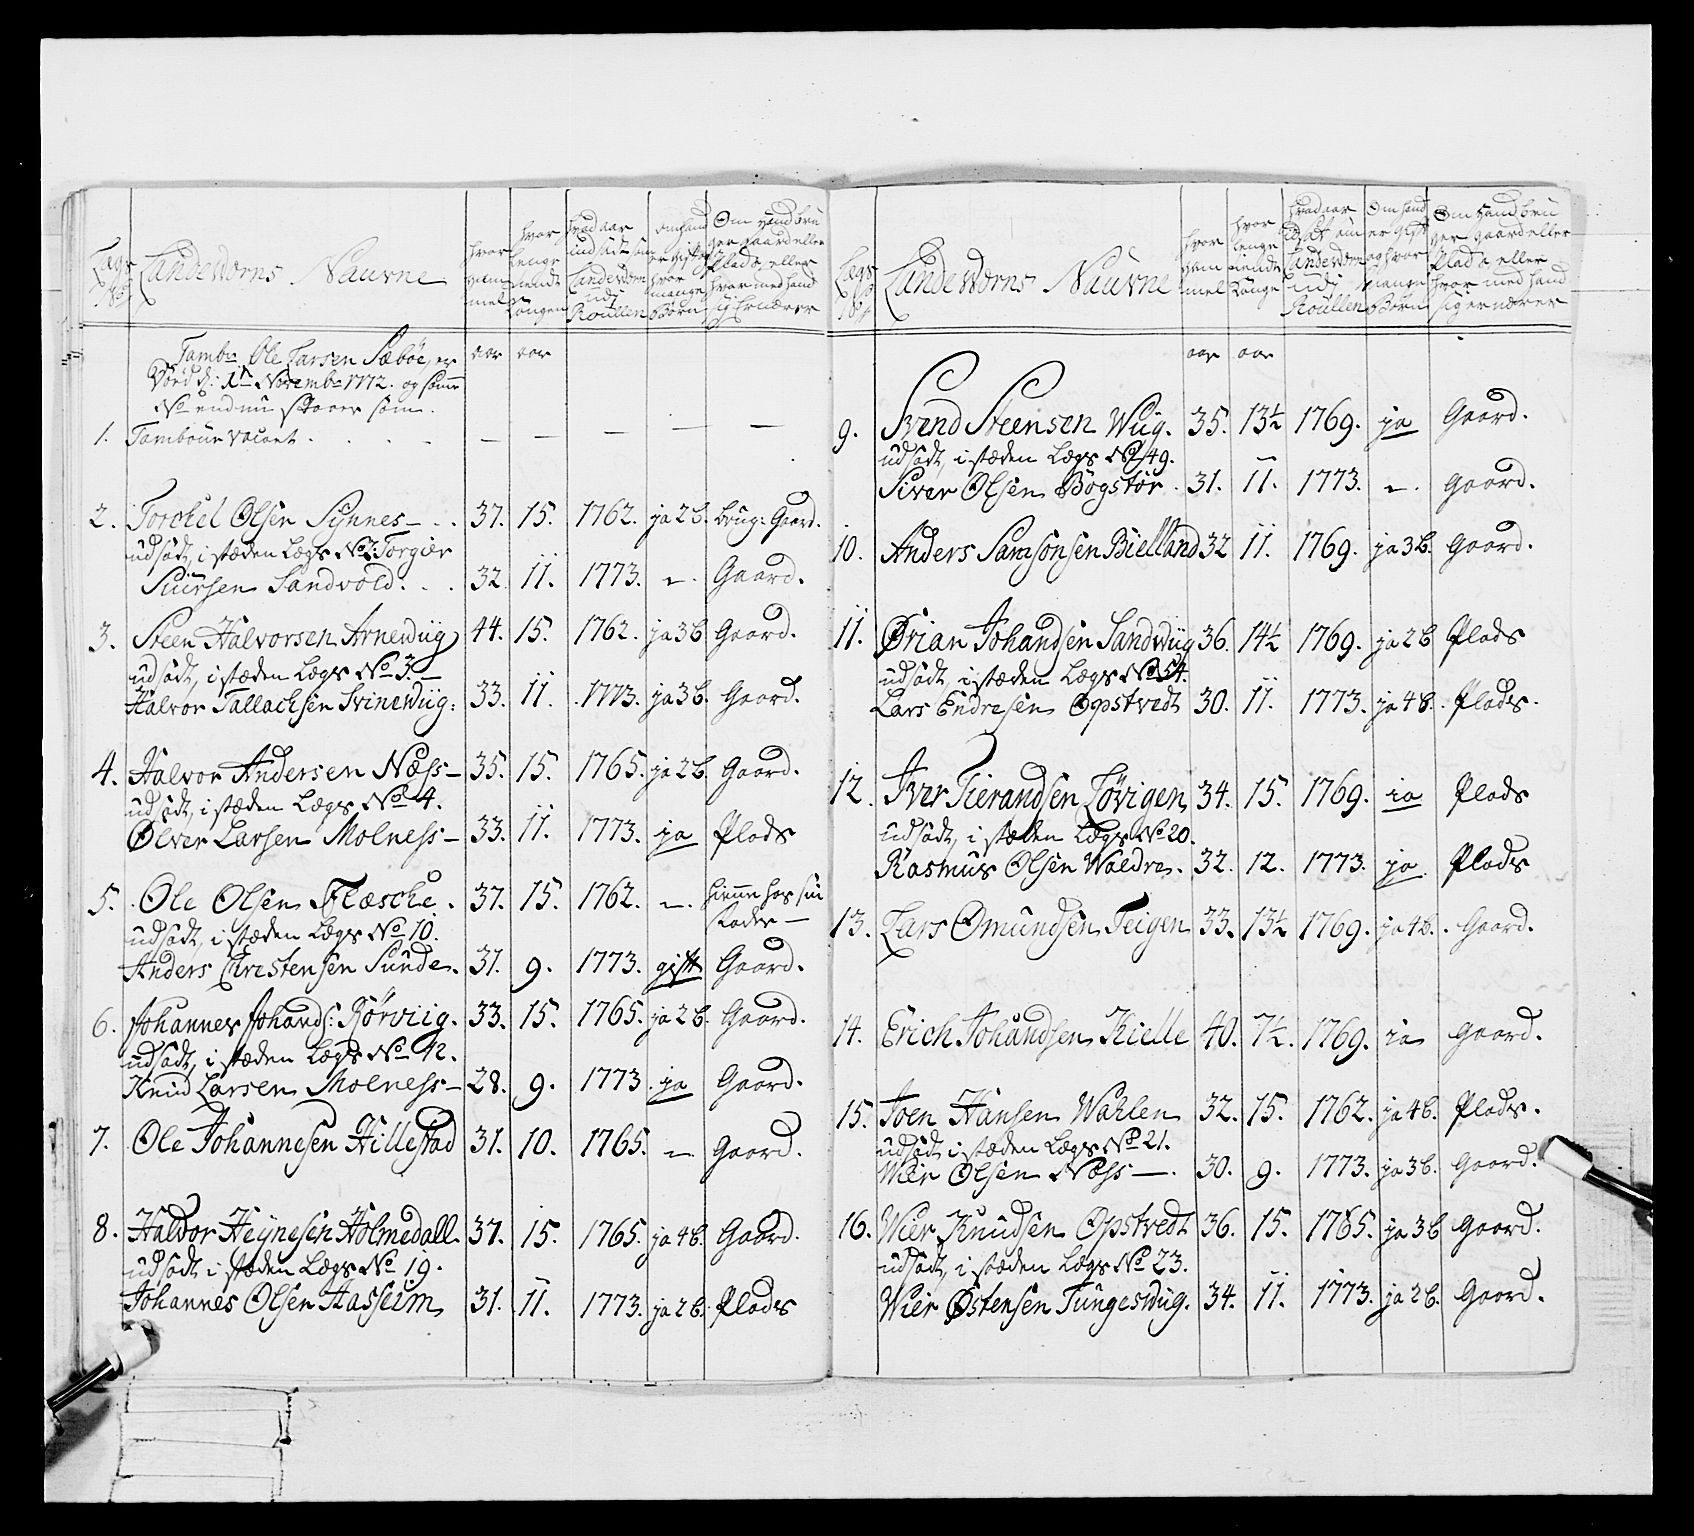 Lægs No | Landeværns Naune | hvor gammel | hvor lenge tient Kongen | hvad aar indsadt som Landværn udj Roullen | om hand er gift og hvor mange Børn | Om hand bruger gaard eller Plads, eller hvor med hand sig Ernærer
Tambr Ole Larsen Sæbøe, er | aar | aar
Død d: 1ste Novembr 1772. og samme
No endnu staaer som.
1. Tambour vacant . . . . — — — — —
2. Torckel Olsen Synnes — . . 37. 15. 1762. ja 2b. brug: Gaard.
udsadt, i stæden Lægs No 2. Torgier
Siursen Sandvold. . . 32. 11. 1773. —. Gaard.
3. Steen Halvorsen Arnewiig 44. 15. 1762. ja 3b Gaard.
udsadt, i stæden Lægs No 3. —
Halvor Tallachsen Svinewiig: 33. 11. 1773. ja 3b. Gaard.
4. Halvor Andersen Næss — 35. 15. 1765. ja 2b. Gaard.
udsadt, i stæden Lægs No 4.
Ølver Larsen Molness — 33. 11. 1773. ja Plads
5. Ole Olsen Flæsche. 37. 15. 1762. —. hiemme hos sin
Fader —
udsadt, i stæden Lægs No 10.
Anders Christensen Sunde. 37. 9. 1773. gift Gaard.
6. Johannes Johands: Rørviig. 33. 15. 1765. ja 2b. Gaard.
udsadt, i stæden Lægs No 12.
Knud Larsen Molness — 28. 9. 1773. ja Gaard.
7. Ole Johannesen Hillestad 31. 10. 1765. — Gaard.
8. Haldor Heynesen Holmedall. 37. 15. 1765. ja 4b. Gaard.
udsadt i stæden Lægs No 19.
Johannes Olsen Hasseim 31. 11. 1773. ja 2b. Plads
Lægs No | Landeværns Naune | hvor gammel | hvor lenge tient Konge | hvad aar indsadt som Landeværn udj Roullen | Om hand er gift og hvor mange Børn | Om hand bruger gaard eller Plads eller hvor med hand sig ernærer
aar aar
9. Svend Steensen Wiig. 35. 13½ 1769. ja Gaard.
udsadt, i stæden Lægs No 49.
Siver Olsen Bogstør. 31. 11. 1773. —. Gaard.
10. Anders Samsonsen Bielland 32 11. 1769. ja 3b. Gaard.
11. Ørian Johandsen Sandwiig 36. 14½ 1769. ja 2b Plads
udsadt, i stæden Lægs No 54.
Lars Endresen Opstvedt 30. 11. 1773. ja 4b. Plads.
12. Iver Tierandsen Løvigen 34. 15. 1769. ia Plads
udsadt, i stæden Lægs No 20.
Rasmus Olsen Waldre. 32. 12. 1773. ja Plads
13. Lars Omundsen Teigen 33. 13½ 1769. ja 4b. Gaard.
14. Erich Johandsen Kielle 40. 7½. 1769. ia Gaard.
15. Joen Hansen Wahlen 32. 15. 1762. ja 4b. Plads.
udsadt i stæden Lægs No 21.
Wier Olsen Næss —. 30. 9. 1773. ja 3b. Gaard.
16. Wier Knudsen Opstvedt 36. 15. 1765. ja 3b Gaard.
udsadt, i stæden Lægs No 23.
Wier Østensen Tungeswiig. 34. 11. 1773. ja 2b. Gaard.